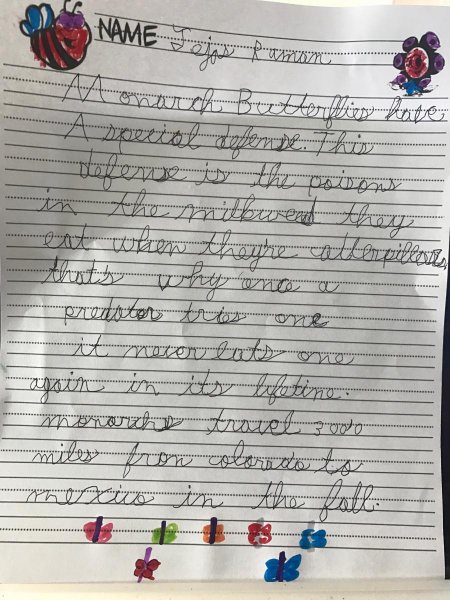 NAME Tejas Raman
Monarch Butterflies have
A special defense. This
defense is the poisons
in the milkweed they
eat when they're catterpillars,
that's why once a
predator tries one
it never eats one
again in its lifetime.
monarchs travel 3000
miles from colorado to
mexico in the fall.